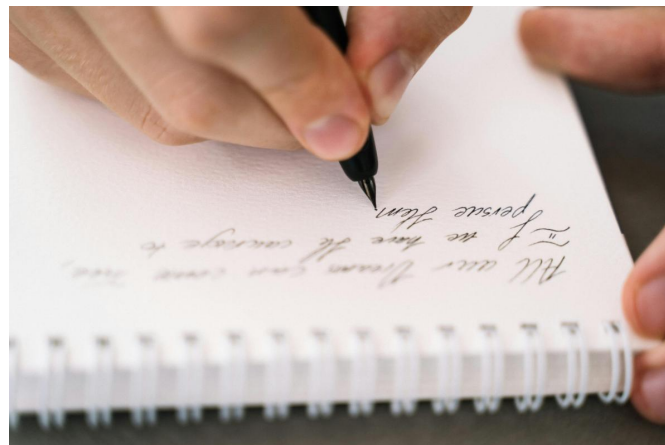 All our Dreams can come true,
If we have the courage to
persue them.